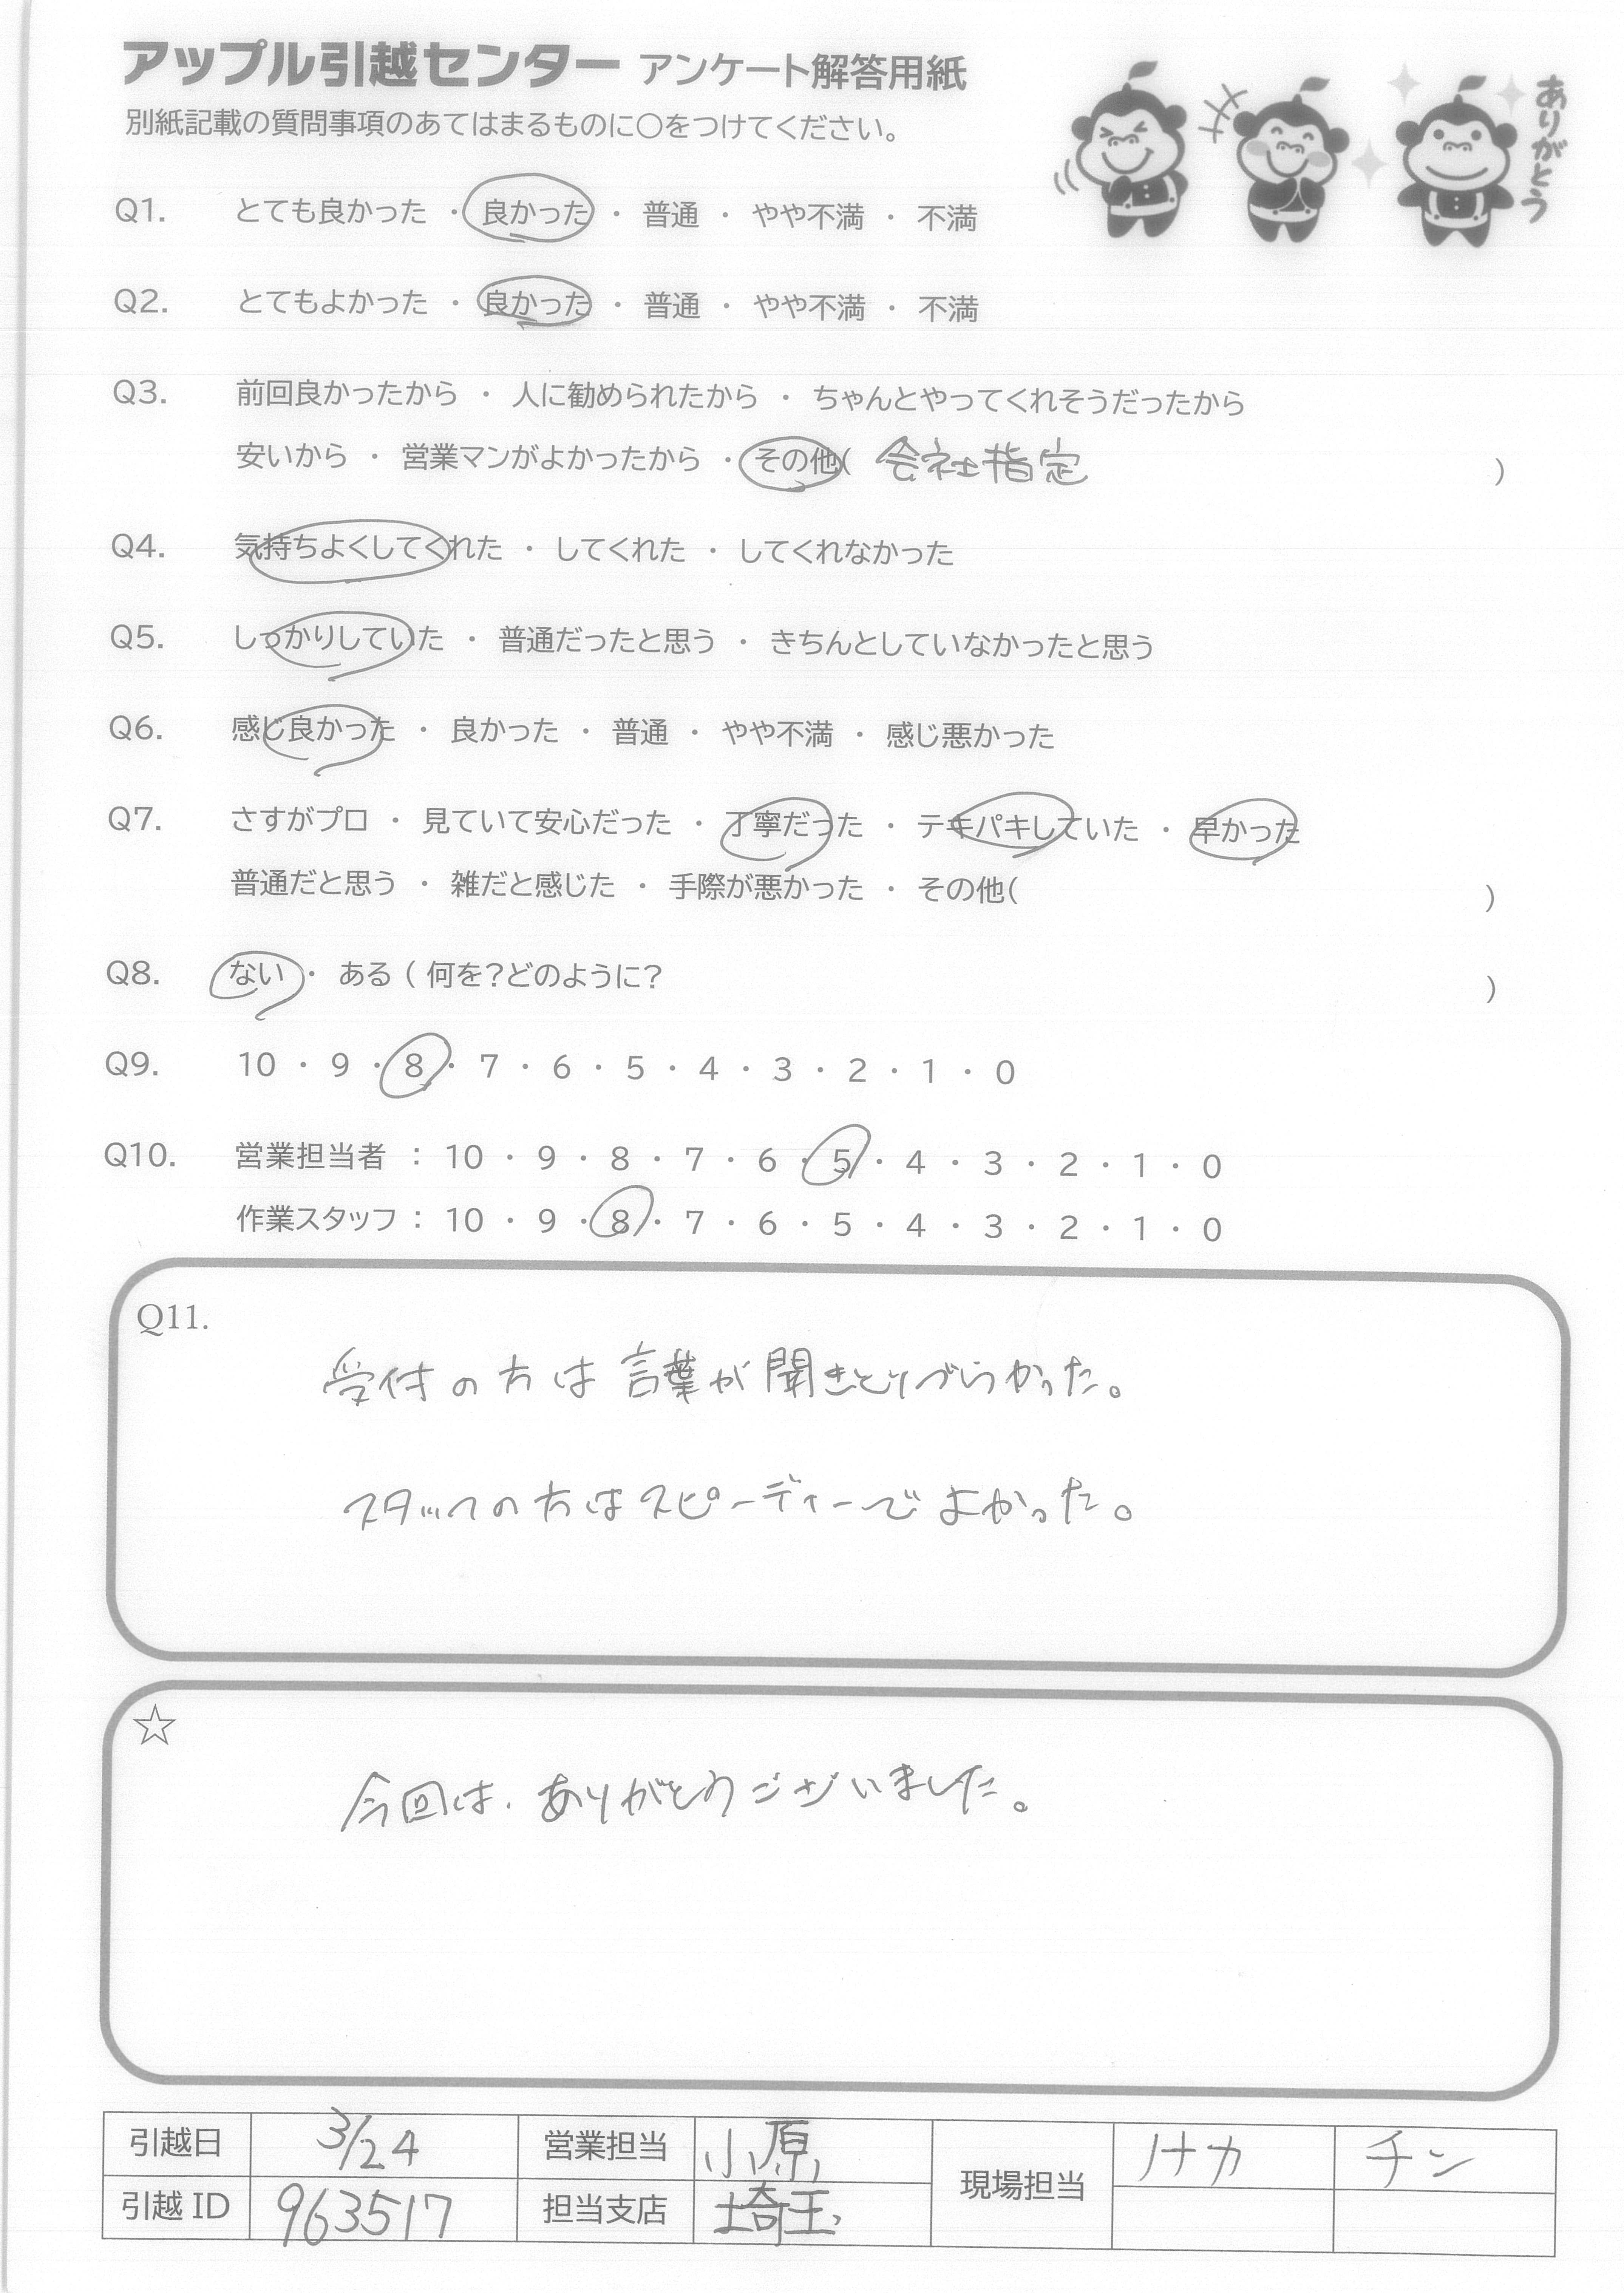 アップル引越センター アンケート解答用紙
別紙記載の質問事項のあてはまるものに○をつけてください。
ありがとう
Q1. とても良かった ・ 良かった ・ 普通 ・ やや不満 ・ 不満
Q2. とてもよかった ・ 良かった ・ 普通 ・ やや不満 ・ 不満
Q3. 前回良かったから ・ 人に勧められたから ・ ちゃんとやってくれそうだったから
安いから ・ 営業マンがよかったから ・ その他( 会社指定 )
Q4. 気持ちよくしてくれた ・ してくれた ・ してくれなかった
Q5. しっかりしていた ・ 普通だったと思う ・ きちんとしていなかったと思う
Q6. 感じ良かった ・ 良かった ・ 普通 ・ やや不満 ・ 感じ悪かった
Q7. さすがプロ ・ 見ていて安心だった ・ 丁寧だった ・ テキパキしていた ・ 早かった
普通だと思う ・ 雑だと感じた ・ 手際が悪かった ・ その他( )
Q8. ない ・ ある ( 何を?どのように? )
Q9. 10 ・ 9 ・ 8 ・ 7 ・ 6 ・ 5 ・ 4 ・ 3 ・ 2 ・ 1 ・ 0
Q10. 営業担当者 : 10 ・ 9 ・ 8 ・ 7 ・ 6 ・ 5 ・ 4 ・ 3 ・ 2 ・ 1 ・ 0
作業スタッフ : 10 ・ 9 ・ 8 ・ 7 ・ 6 ・ 5 ・ 4 ・ 3 ・ 2 ・ 1 ・ 0
Q11.
受付の方は言葉が聞きとりづらかった。
スタッフの方はスピーディーでよかった。
☆
今回は、ありがとうございました。
引越日 3/24 営業担当 小原 現場担当 ナカ チン
引越 ID 963517 担当支店 埼玉